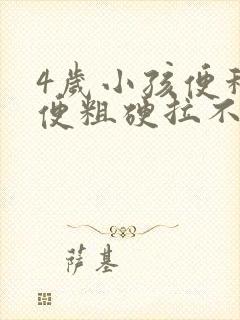 4歲小孩便
便粗硬拉不
萨基